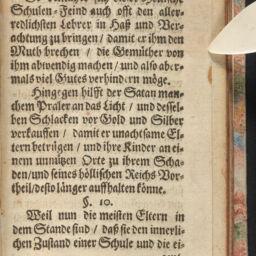 Schulen-Feind auch offt den aller-
redlichsten Lehrer in Haß und Ver-
achtung zu bringen / damit er ihm den
Muth brechen / die Gemüther von
ihm abwendig machen / und also aber-
mals viel Gutes verhindern möge.
Hingegen hilfft der Satan man-
chem Praler an das Licht / und dessel-
ben Schlacken vor Gold und Silber
verkauffen / damit er unachtsame El-
tern betrügen / und ihre Kinder an ei-
nem unnützen Orte zu ihrem Scha-
den / und seines höllischen Reichs Vor-
theil / desto länger auffhalten könne.
§. 10.
Weil nun die meisten Eltern in
dem Stande sind / daß sie den innerli-
chen Zustand einer Schule und die ei-